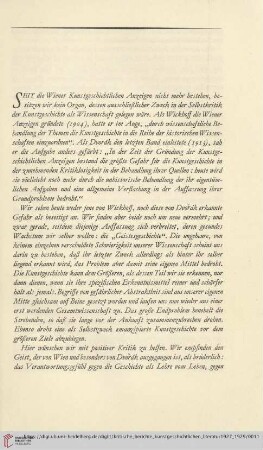 SEIT die Wiener Kunstgeschichtlichen Anzeigen nicht mehr bestehen, be-
sitzen wir kein Organ, dessen ausschließlicher Zweck in der Selbstkritik
der Kunstgeschichte als Wissenschaft gelegen wäre. Als Wickhoff die Wiener
Anzeigen gründete (1904), hatte er im Auge, „durch wissenschaftliche Be-
handlung der Themen die Kunstgeschichte in die Reihe der historischen Wissen-
schaften einzuordnen“. Als Dvořák den letzten Band einleitete (1913), sah
er die Aufgabe anders gefärbt: „In der Zeit der Gründung der Kunstge-
schichtlichen Anzeigen bestand die größte Gefahr für die Kunstgeschichte in
der zunehmenden Kritiklosigkeit in der Behandlung ihrer Quellen: heute wird
sie vielleicht noch mehr durch die unhistorische Behandlung der ihr eigentüm-
lichen Aufgaben und eine allgemeine Verflachung in der Auffassung ihrer
Grundprobleme bedroht.“
Wir sehen heute weder jene von Wickhoff, noch diese von Dvořák erkannte
Gefahr als beseitigt an. Wir finden aber beide noch um neue vermehrt; und
zwar gerade, seitdem diejenige Auffassung sich verbreitet, deren gesundes
Wachstum wir selber wollen: die „Geistesgeschichte“. Die ungeheure, von
keinem einzelnen verschuldete Schwierigkeit unserer Wissenschaft scheint uns
darin zu bestehen, daß ihr letzter Zweck allerdings als hinter ihr selber
liegend erkannt wird, das Problem aber damit seine eigene Mittel bedroht.
Die Kunstgeschichte kann dem Größeren, als dessen Teil wir sie erkennen, nur
dann dienen, wenn sie ihre spezifischen Erkenntnismittel reiner und schärfer
hält als jemals. Begriffen von gefährlicher Abstraktheit sind aus unserer eigenen
Mitte gleichsam auf Beine gesetzt worden und laufen uns nun wieder aus einer
erst werdenden Gesamtwissenschaft zu. Das große Endproblem benebelt die
Strebenden, so daß sie lange vor der Ankunft zusammenzubrechen drohen.
Ebenso droht eine als Selbstzweck emanzipierte Kunstgeschichte vor dem
größeren Ziele abzubiegen.
Hier wünschen wir mit positiver Kritik zu helfen. Wir empfinden den
Geist, der von Wien und besonders von Dvořák ausgegangen ist, als brüderlich:
das Verantwortungsgefühl gegen die Geschichte als Lehre vom Leben, gegen